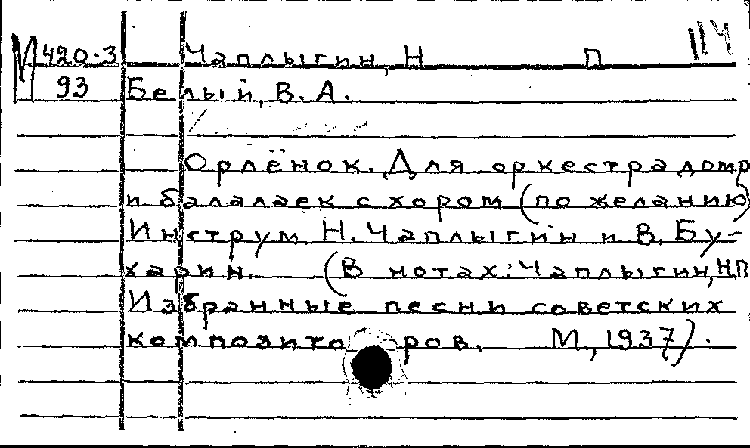 М 420-3 Чаплыгин, Н П 114
93 Белый, В. А.
Орлёнок. Для оркестра домр
и балалаек с хором (по желанию)
Инструм. Н. Чаплыгин и В. Бу-
харин. (В нотах: Чаплыгин, Н.П.
Избранные песни советских
композиторов. М., 1937).